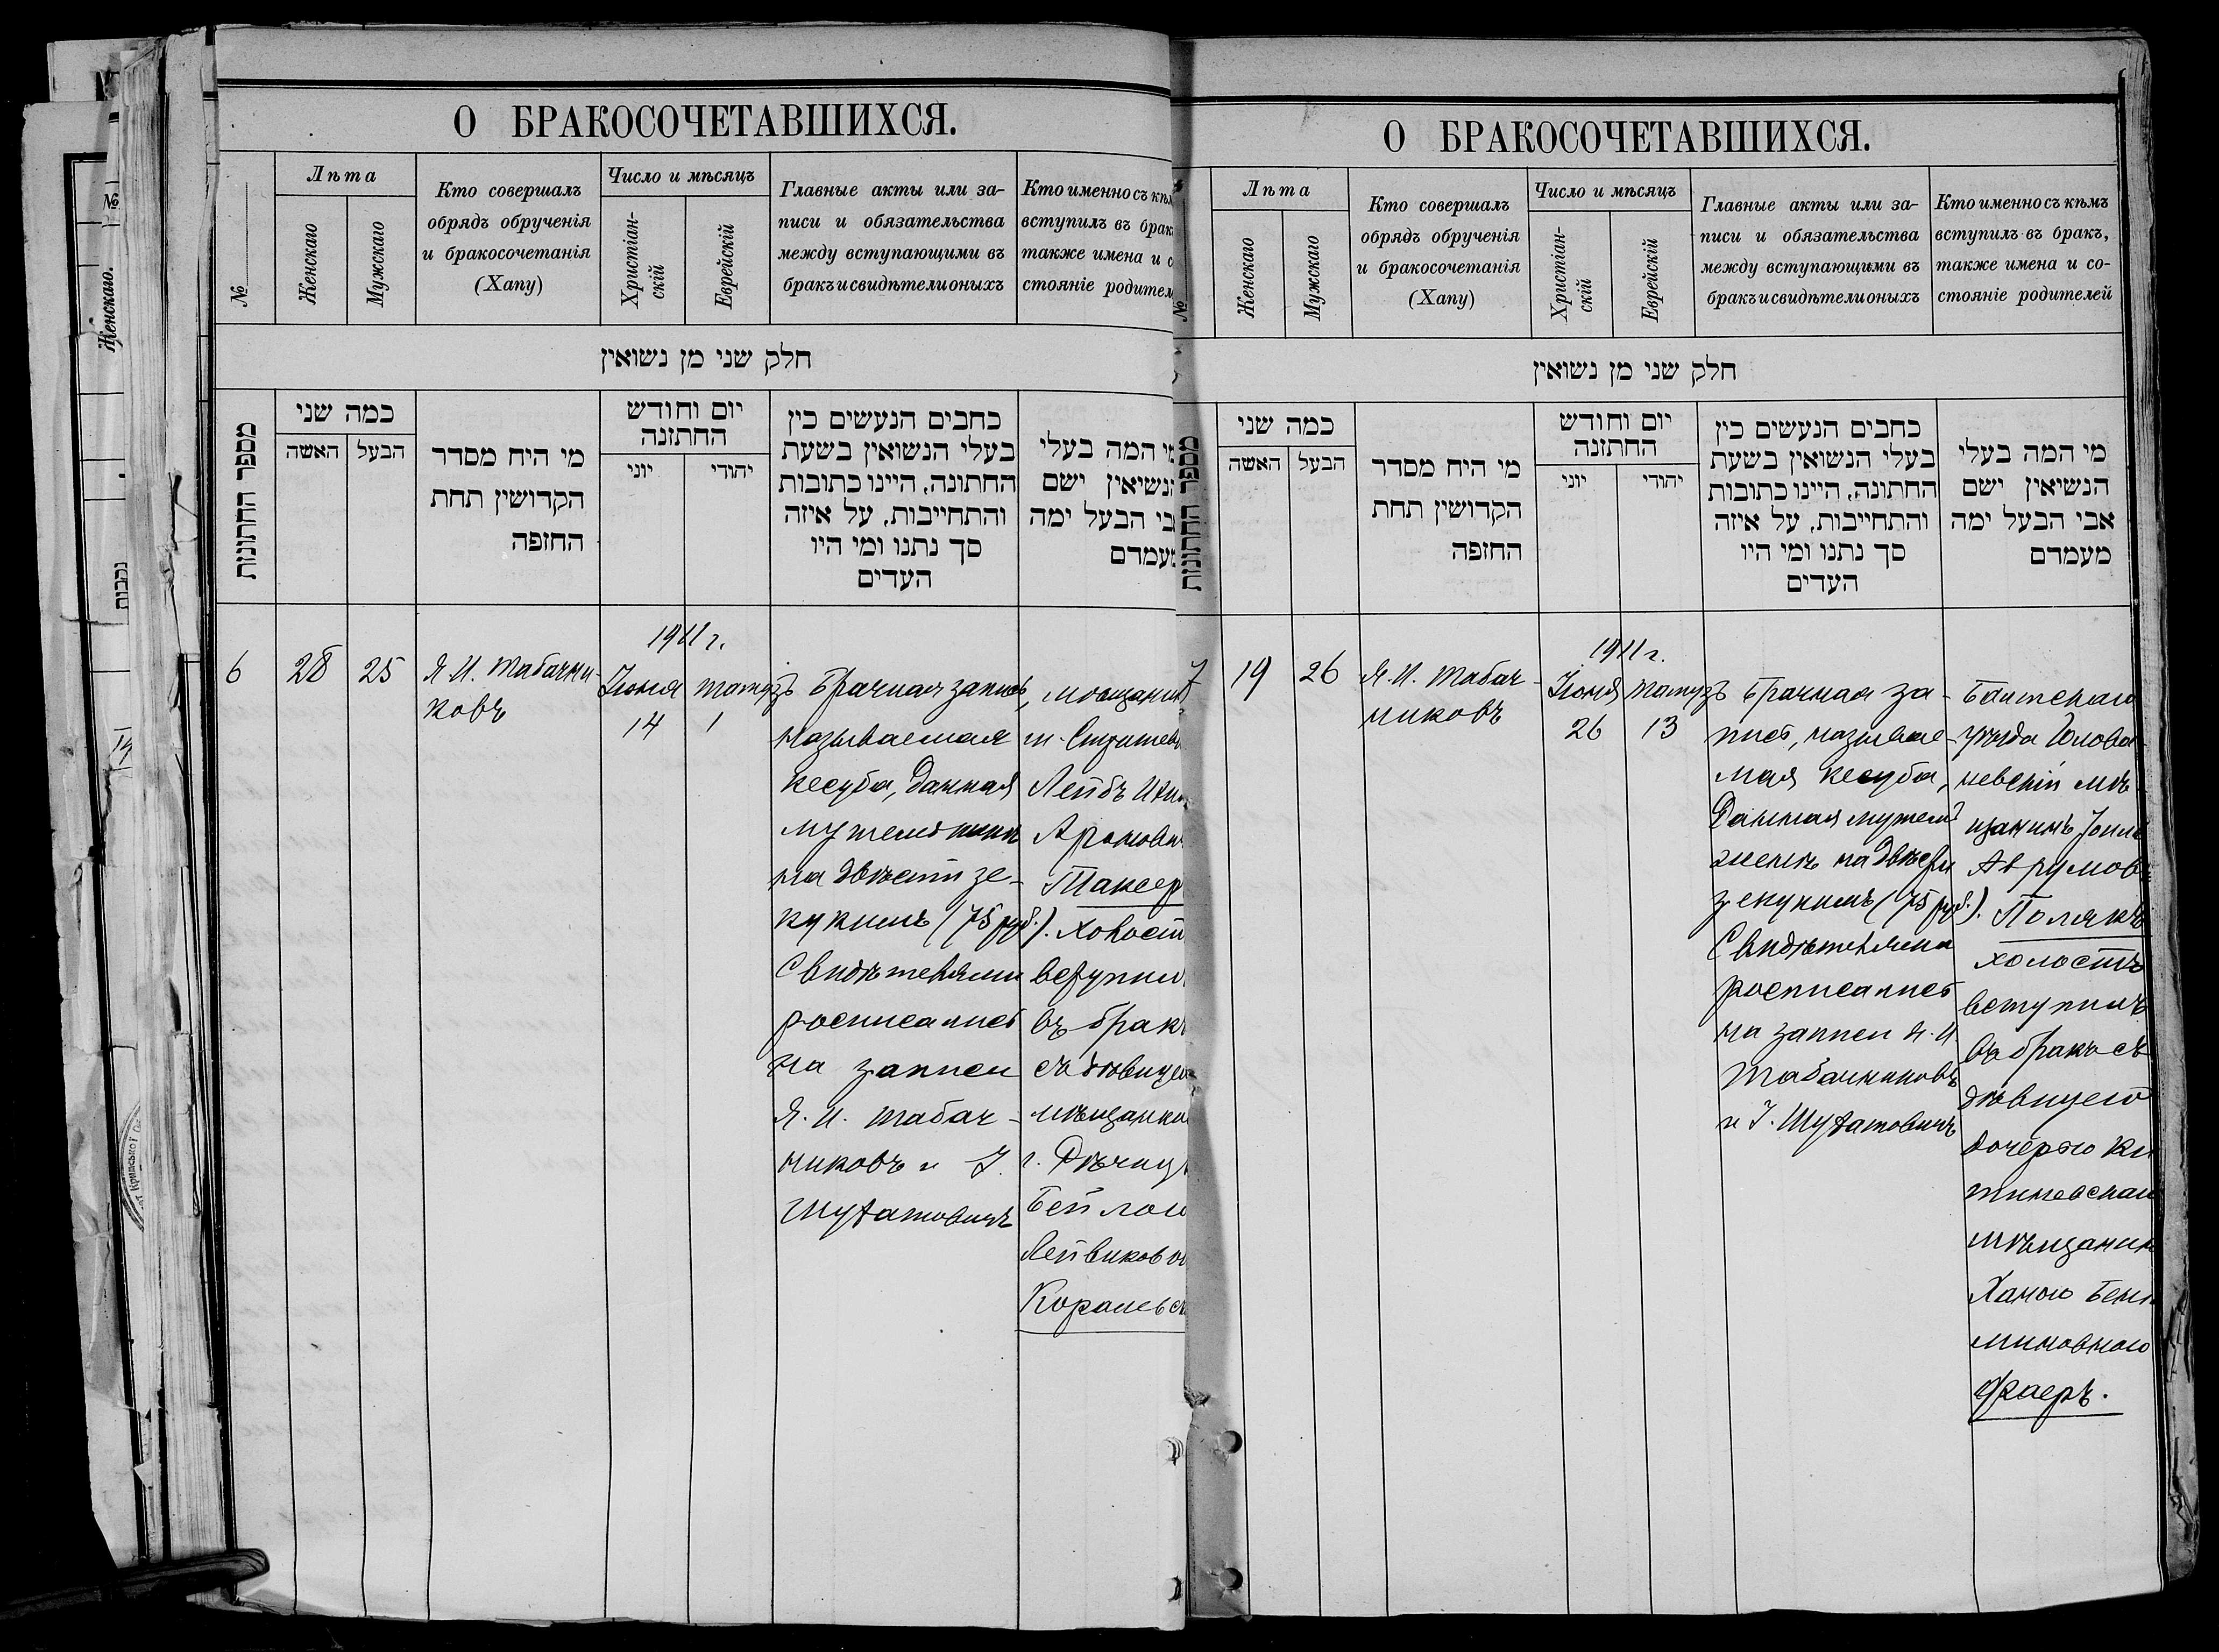 О БРАКОСОЧЕТАВШИХСЯ.
№
Лѣта
Женскаго
Мужскаго
Кто совершалъ
обрядъ обрученія
и бракосочетанія
(Хапу)
Число и мѣсяцъ
Христіан-
скій
Еврейскій
Главные акты или за-
писи и обязательства
между вступающими въ
бракъ и свидѣтели оныхъ
Кто именно съ кѣм
вступилъ въ брак
также имена и с
стояніе родител
חלק שני מן נשואין
מספר החתונות
כמה שני
האשה
הבעל
מי היח מסדר
הקדושין תחת
החזפה
יום וחודש
החתזנה
יוני
יהודי
כחבים הנעשים כין
בעלי הנשואין בשעת
החתונה, היינו כתובות
והתחייבות, על איזה
סך נתנו ומי היו
העדים
מי המה בעלי
הנשיאין ישם
אבי הבעל ימה
מעמדם
6
28
25
Я. И. Табачни-
ковъ
1911 г.
Іюня
14
Тамузъ
1
Брачная запись,
называемая
кесуба, данная
мужемъ женѣ
на двѣсти зе-
кукимъ (75 руб.).
Свидѣтелями
росписались
на записи
Я. И. Табач-
никовъ и І.
мѣщанин
Лейбъ
Аронович
Таксер
Холост
вступил
въ бракъ
съ дѣвицею
мѣщанкой
г.
Бейлою
Лейвиково
О БРАКОСОЧЕТАВШИХСЯ.
№
Лѣта
Женскаго
Мужскаго
Кто совершалъ
обрядъ обрученія
и бракосочетанія
(Хапу)
Число и мѣсяцъ
Христіан-
скій
Еврейскій
Главные акты или за-
писи и обязательства
между вступающими въ
бракъ и свидѣтели оныхъ
Кто именно съ кѣмъ
вступилъ въ бракъ,
также имена и со-
стояніе родителей
חלק שני מן נשואין
מספר החתונות
כמה שני
האשה
הבעל
מי היח מסדר
הקדושין תחת
החזפה
יום וחודש
החתזנה
יוני
יהודי
כחבים הנעשים כין
בעלי הנשואין בשעת
החתונה, היינו כתובות
והתחייבות, על איזה
סך נתנו ומי היו
העדים
מי המה בעלי
הנשיאין ישם
אבי הבעל ימה
מעמדם
7
19
26
Я. И. Табач-
никовъ
1911 г.
Іюня
26
Тамузъ
13
Брачная за-
пись, называе-
мая кесуба,
данная мужемъ
женѣ на двѣсти
зекукимъ (75 руб.).
Свидѣтелями
росписались
на записи Я. И.
Табачниковъ
и І.
Балтскаго
уѣзда Голова-
невскій мѣ-
щанинъ
Аврумов
Полякъ
холостъ
вступилъ
въ бракъ съ
дѣвицею
дочерью Ки-
шиневскаго
мѣщанина
Ханою Бень-
миновною
Фраеръ.